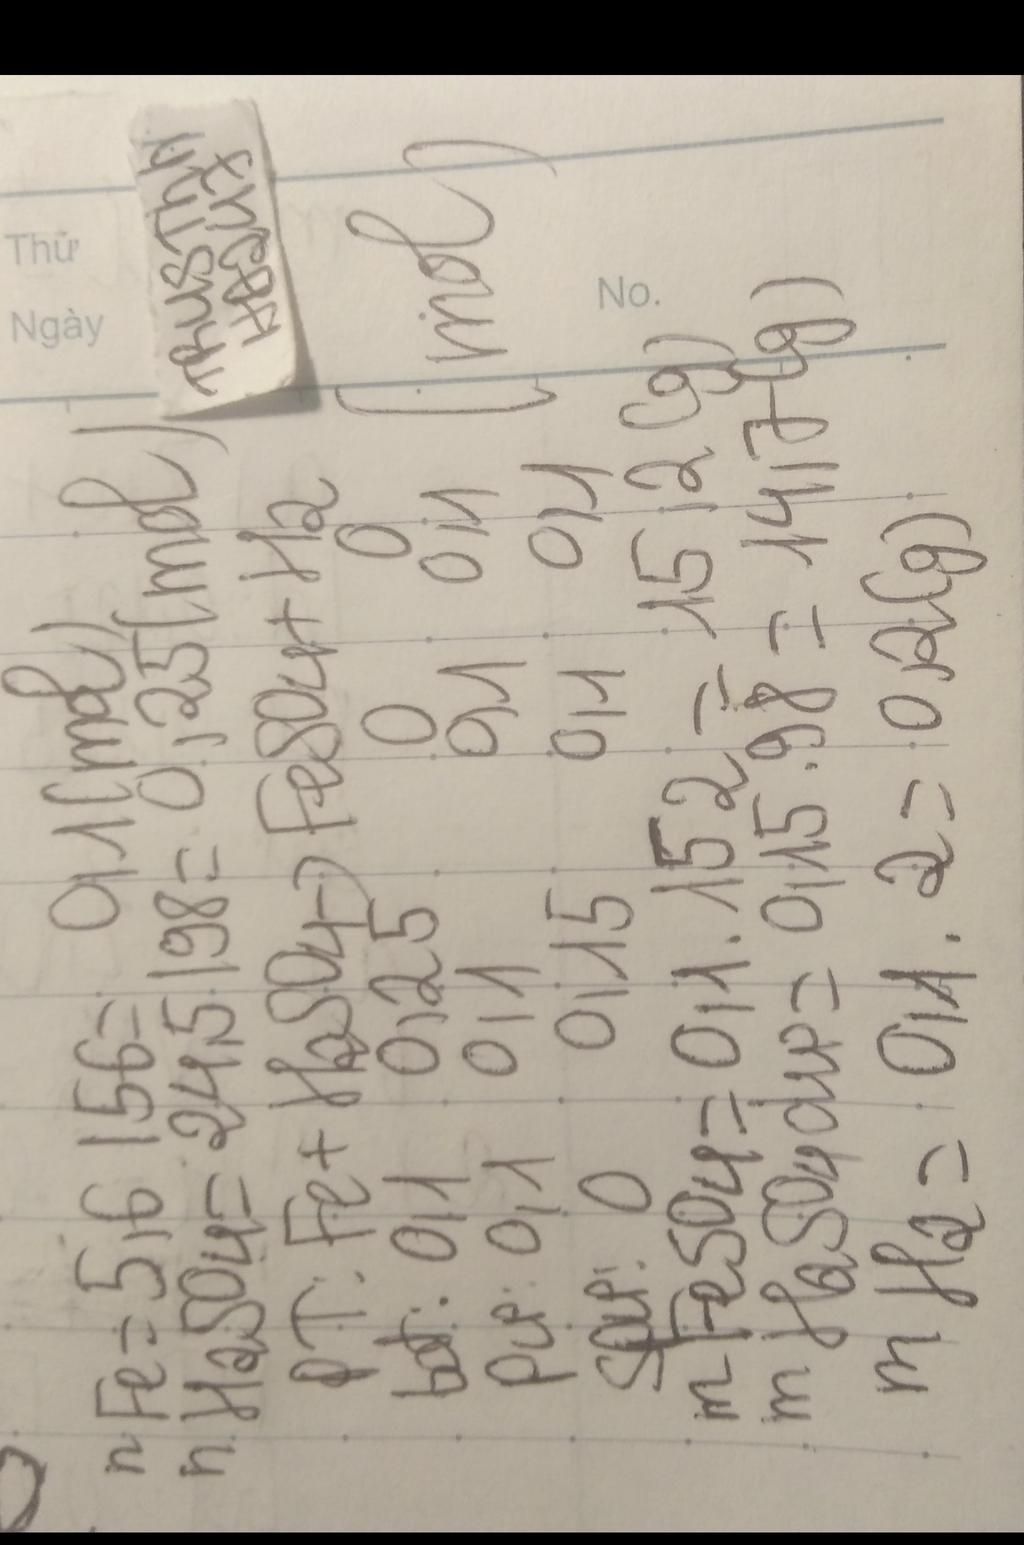 Thứ
Ngày
No.
TRUSTInh
HOS2U43
nFe = 5,6 / 56 = 0,1 (mol)
nH2SO4 = 24,5 / 98 = 0,25 (mol)
PT: Fe + H2SO4 -> FeSO4 + H2
bđ: 0,1 0,25 0 0
pư: 0,1 0,1 0,1 0,1 (mol)
spư: 0 0,15 0,1 0,1
mFeSO4 = 0,1 . 152 = 15,2 (g)
mH2SO4 dư = 0,15 . 98 = 14,7 (g)
mH2 = 0,1 . 2 = 0,2 (g)